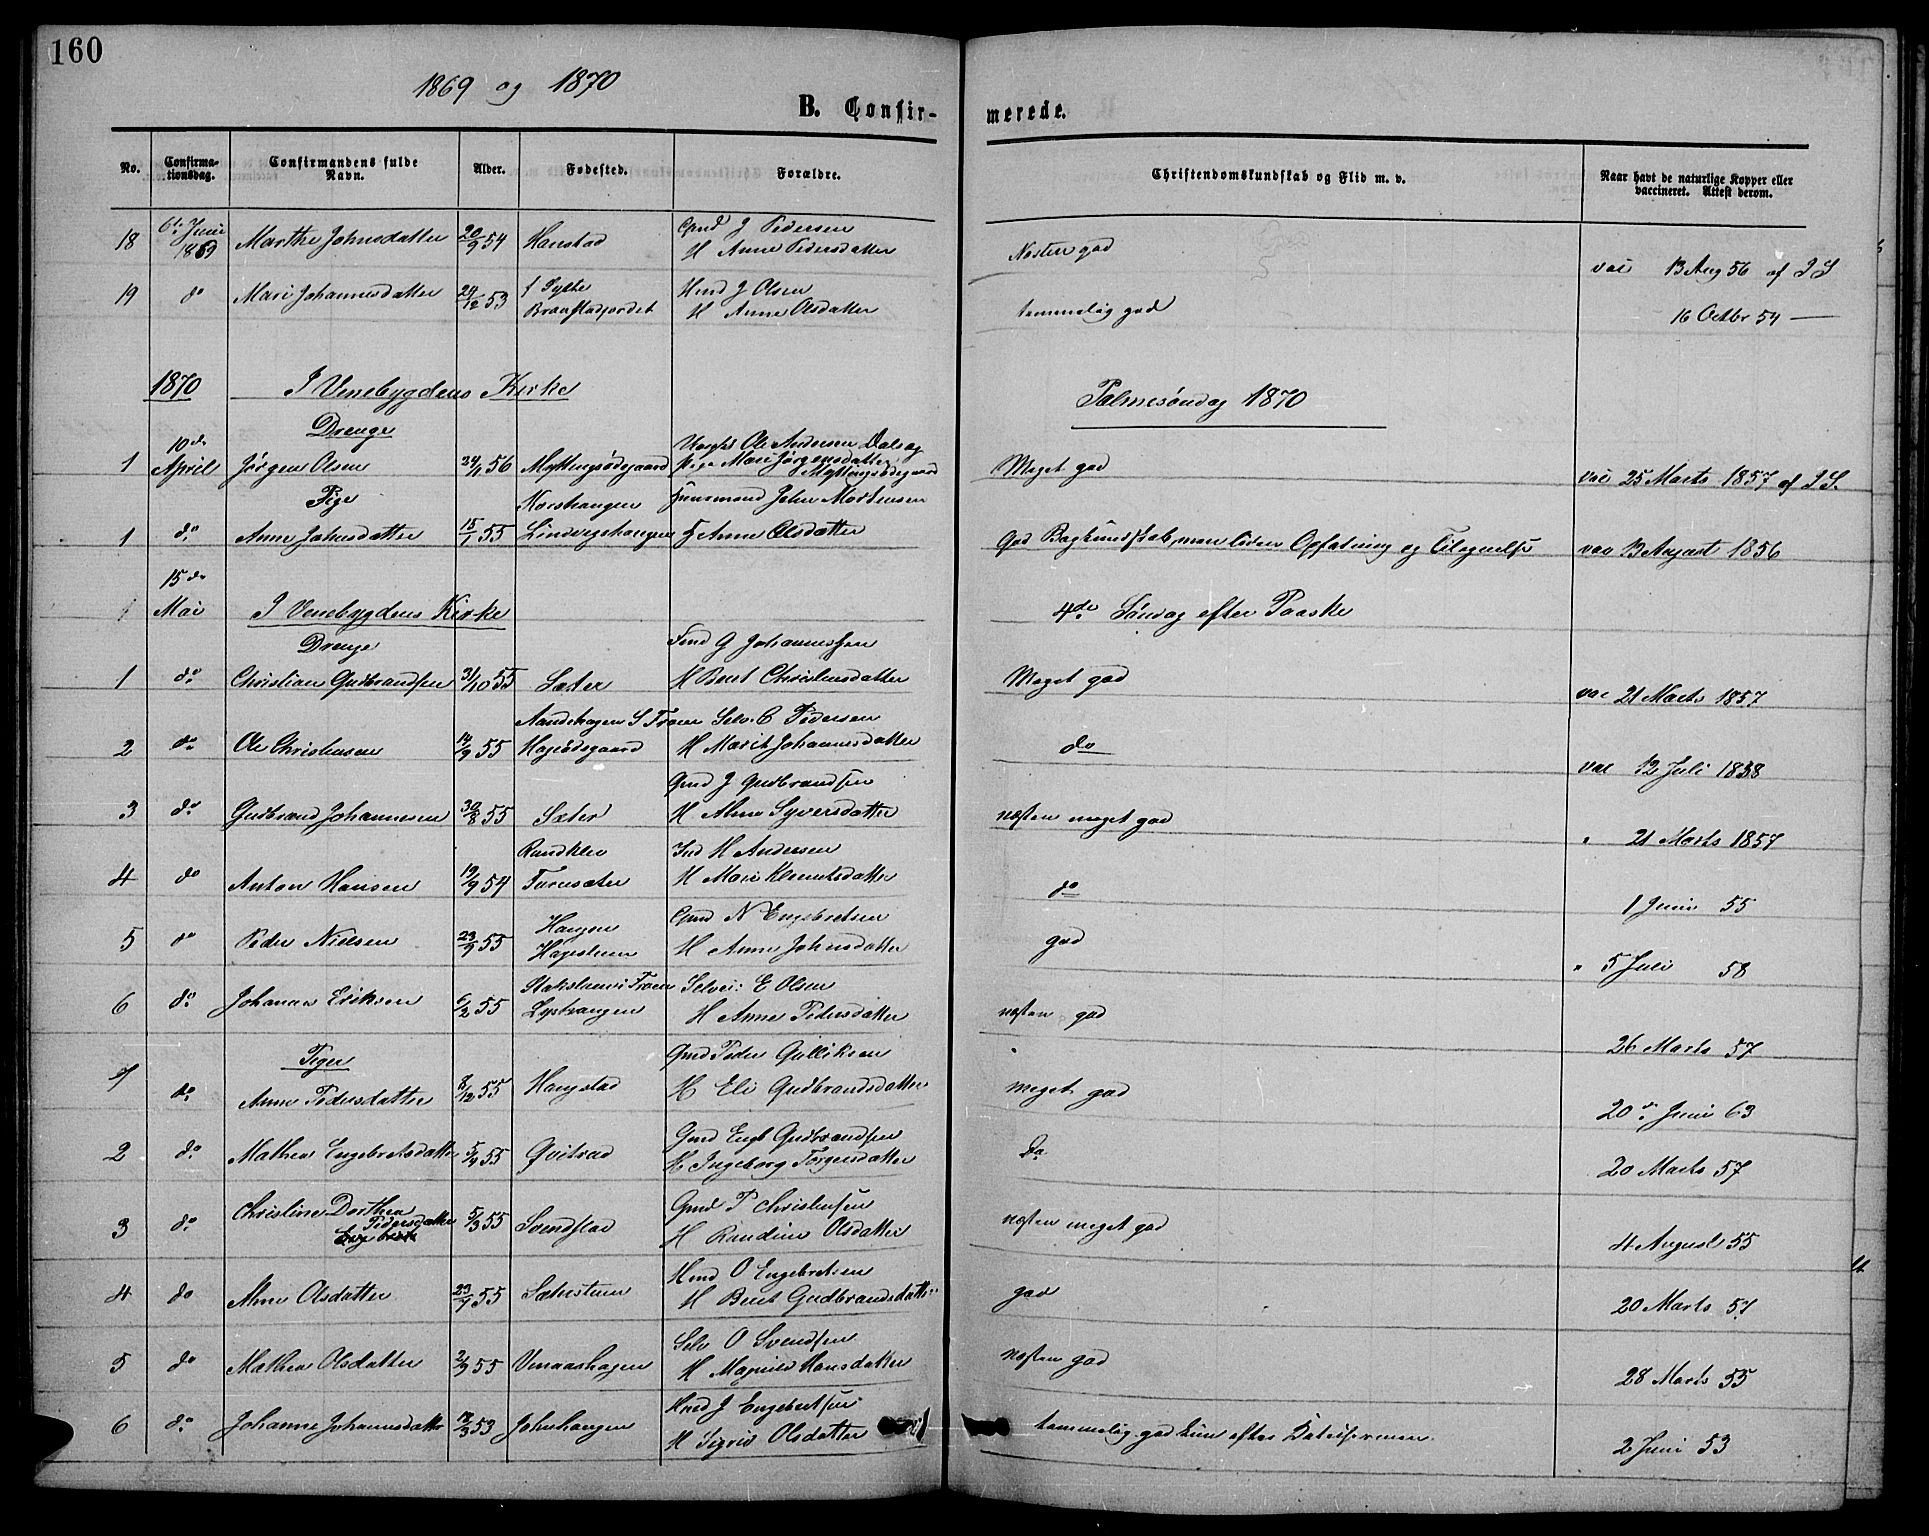 160
1869 og 1870
B. Confir-
merede.
No. Confirma-tionsdag. Confirmandens fulde Navn. Alder. Fødested. Forældre. Christendomskundskab og Flid m. v. Naar havt de naturlige Kopper eller vaccineret. Attest derom.
18 6te Juni 1869 Marthe Johnsdatter 20/9 54 Hanstad Gmd J Pedersen
H Anne Pedersdatter Næsten god vac 13 Aug 56 af J S
19 do Mari Johannesdatter 24/12 53 Hmd J Olsen
H Anne Olsdatter temmelig god 16 Octbr 54 —
1870 I Venebygdens Kirke Palmesøndag 1870
Drenge
1 10de April Jørgen Olsen 24/1 56 Myttingsødegaard Ungkl Ole Andersen
Pige Mari Jørgensdatter Myttingsødegaard Meget god vac 25 Marts 1857 af J S.
Pige
1 do Anne Johnsdatter 15/1 55 Korshaugen Huusmand John Mortensen
Anne Olsdatter God Bogkundskab, men liden Opfatning og Tilegnelse vac 13 August 1856
15de Mai I Venebygdens Kirke 4de Søndag efter Paaske
Drenge
1 do Christian Gudbrandsen 31/10 55 Sæter G Johannessen
H Berit Christensdatter Meget god vac 21 Marts 1857
2 do Ole Christensen 14/9 55 S Fron Selv. C Pedersen
H Marit Johannesdatter do vac 12 Juli 1858
3 do Gudbrand Johannesen 30/8 55 Sæter Gmd J Gudbrandsen
H Anne Syversdatter næsten meget god " 21 Marts 1857
4 do Anton Hansen 19/9 54 Randklev Turusæter Ind H Andersen
H Mari Klemetsdatter do 1 Juni 55
5 do Peder Nielsen 23/9 55 Haugen Gmd N Engebretsen
H Anne Johnsdatter god " 5 Juli 58
6 do Johannes Eriksen 6/2 55 i Fron Selvei: E Olsen
H Anne Pedersdatter næsten god 26 Marts 57
Piger
1 do Anne Pedersdatter 8/12 55 Haugstad Gmd Peder Gulliksen
H Eli Gudbrandsdatter meget god 20de Juni 63
2 do Mathea Engebretsdatter 5/9 55 Qvitrud Gmd Engb Gudbrandsen
H Ingeborg Torgersdatter Do 20 Marts 57
3 do Christine Dorthea Pedersdatter 5/3 55 Svendstad Gmd P Christensen
H Randine Olsdatter næsten meget god 4 August 55
4 do Anne Olsdatter 23/7 55 Hmd O Engebretsen
H Berit Gudbrandsdatter god 20 Marts 57
5 do Mathea Olsdatter 55 Venaashagen Selv O Svendsen
H Magnild Hansdatter næsten god 28 Marts 55
6 do Johanne Johannesdatter 53 Johnhaugen Hmd J Engebretsen
H Sigrid Olsdatter temmelig god kun efter 2 Juni 53